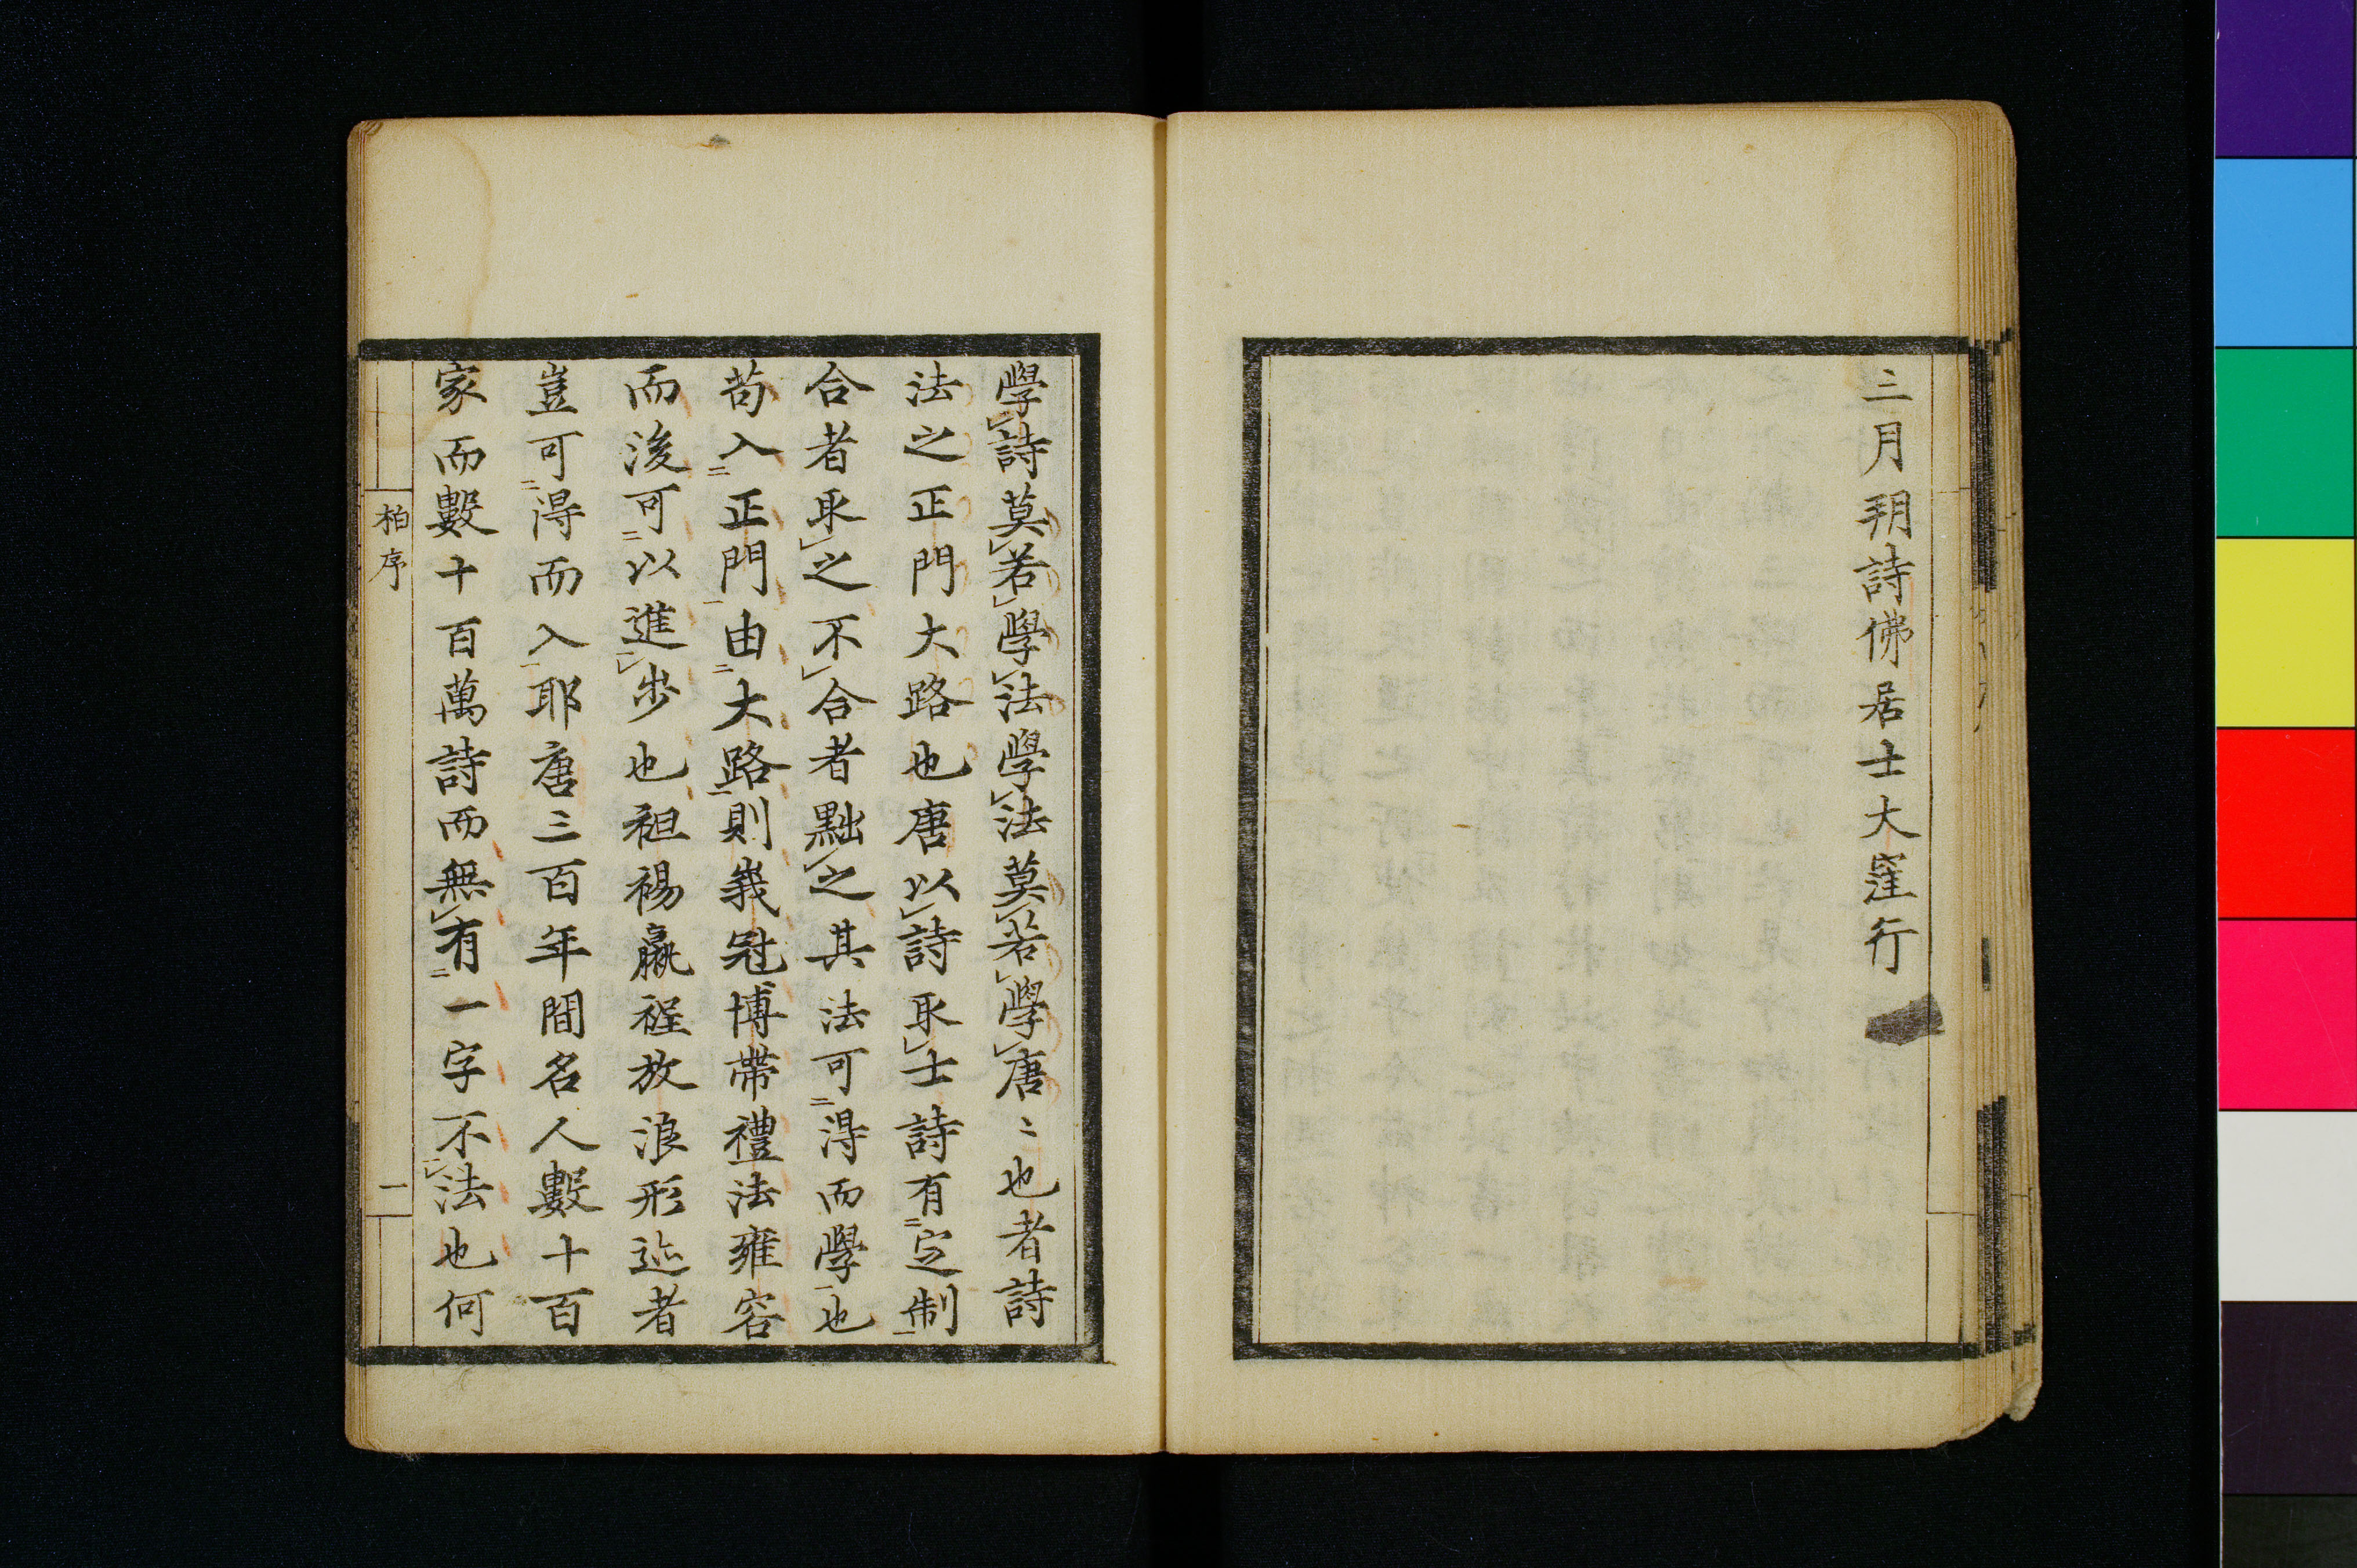 三月朔詩佛居士大窪行
學詩莫若學法學法莫若學唐〻也者詩
法之正門大路也唐以詩取士詩有定制
合者取之不合者黜之其法可得而學也
苟入正門由大路則峩冠博帶禮法雍容
而後可以進步也袒裼臝裎放浪形迹者
豈可得而入耶唐三百年間名人數十百
家而數十百萬詩而無有一字不法也何
柏序
一